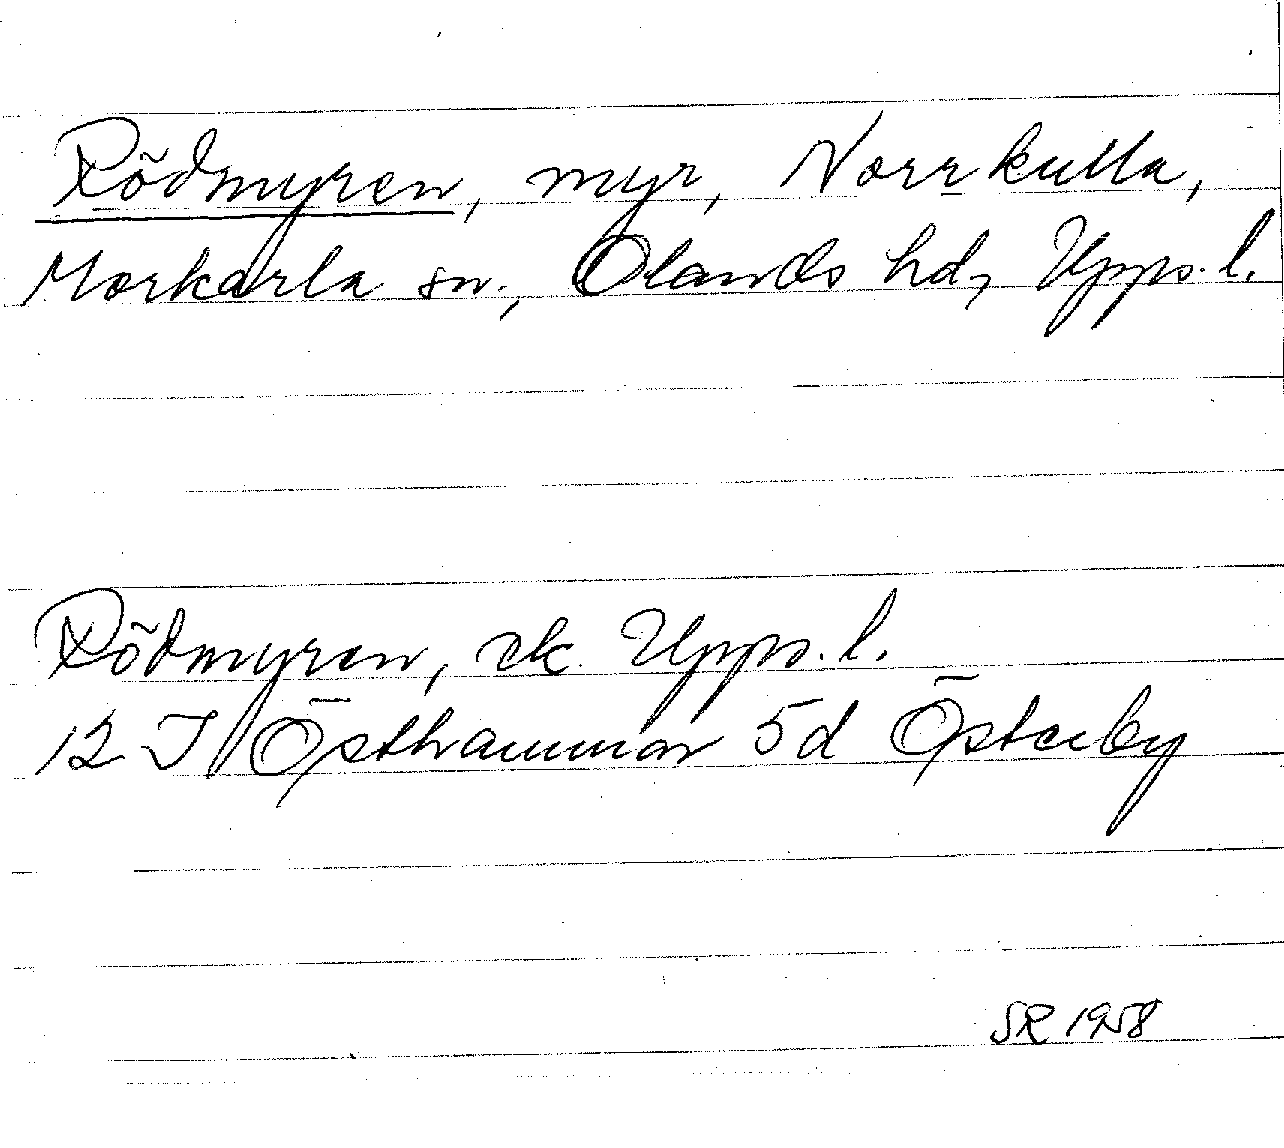 Rödmyren, myr, Norrkulla,
Morkarla sn., Olands hd, Upps. l.
Rödmyren, ek. Upps. l.
12 I Östhammar 5d Österby
SR 1958